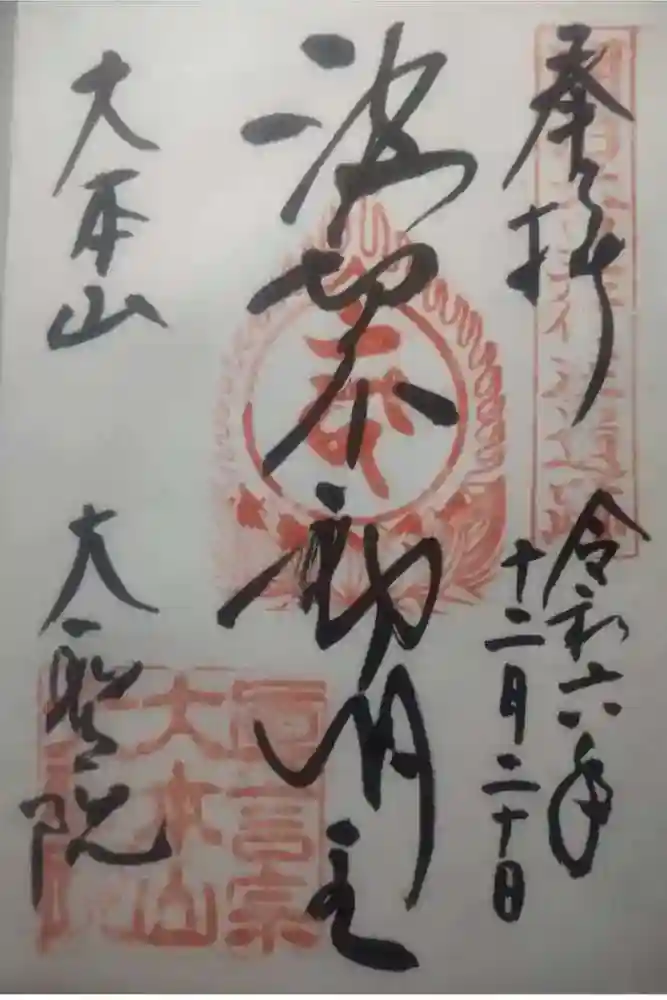 奉拝
令和六年
十二月二十日
波切不動明王
大本山
大聖院
真言宗
大本山